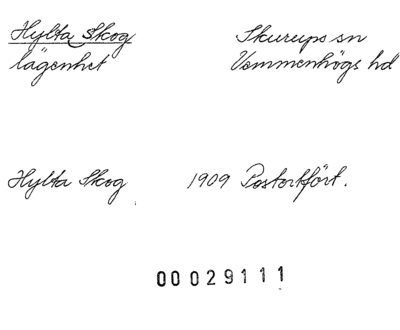 Hylta Skog Skurups sn
lägenhet Vemmenhögs hd
Hylta Skog 1909 Postortfört.
00029111